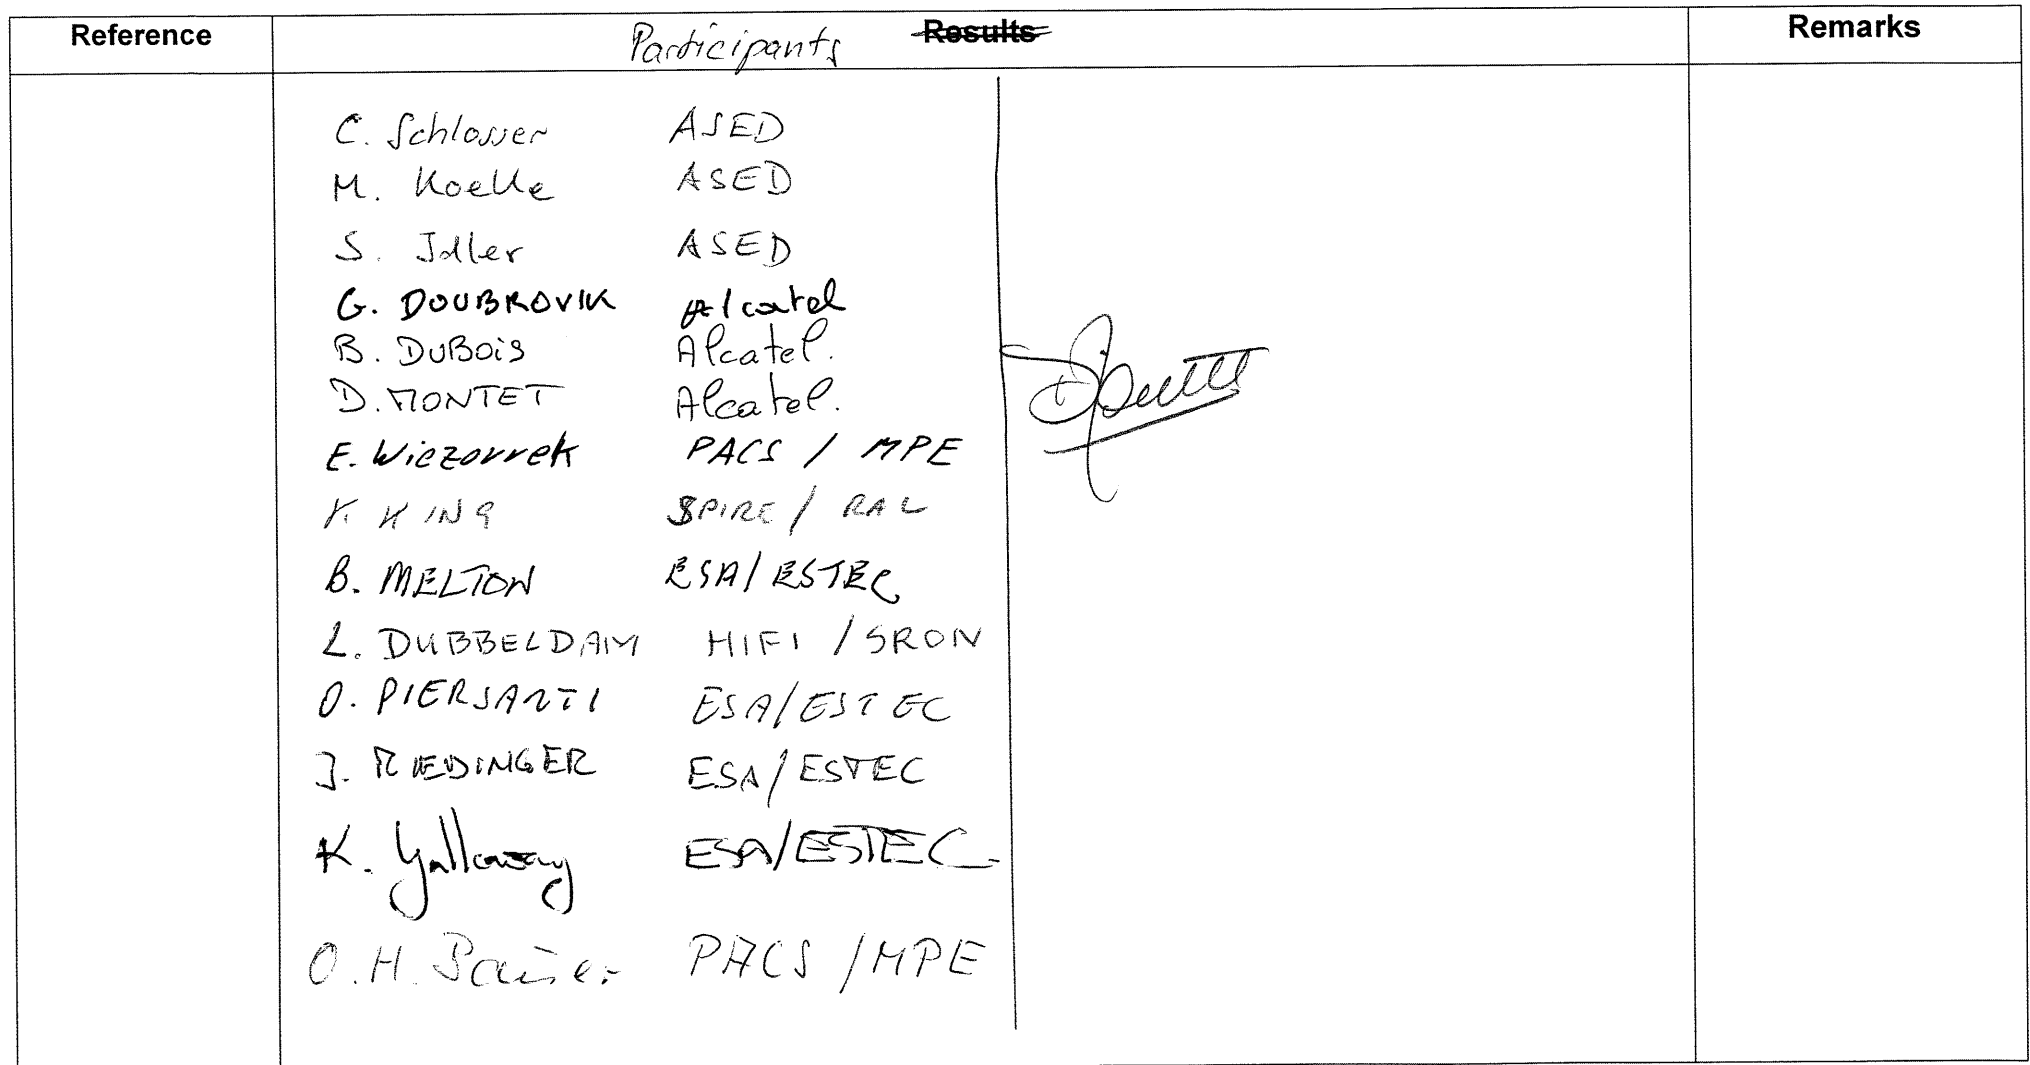 Reference Participants Results Remarks
C. Schlosser ASED
M. Koelle ASED
S. Idler ASED
G. DOUBROVIK Alcatel
B. DUBOiS Alcatel.
D. MONTET Alcatel.
E. Wiezorrek PACS / MPE
K KING SPIRE / RAL
B. MELTON ESA/ESTEC
L. DUBBELDAM HIFI / SRON
O. PIERSANTI ESA/ESTEC
J. RIEDINGER ESA/ESTEC
K. Galloway ESA/ESTEC
O.H. Bauer PACS / MPE